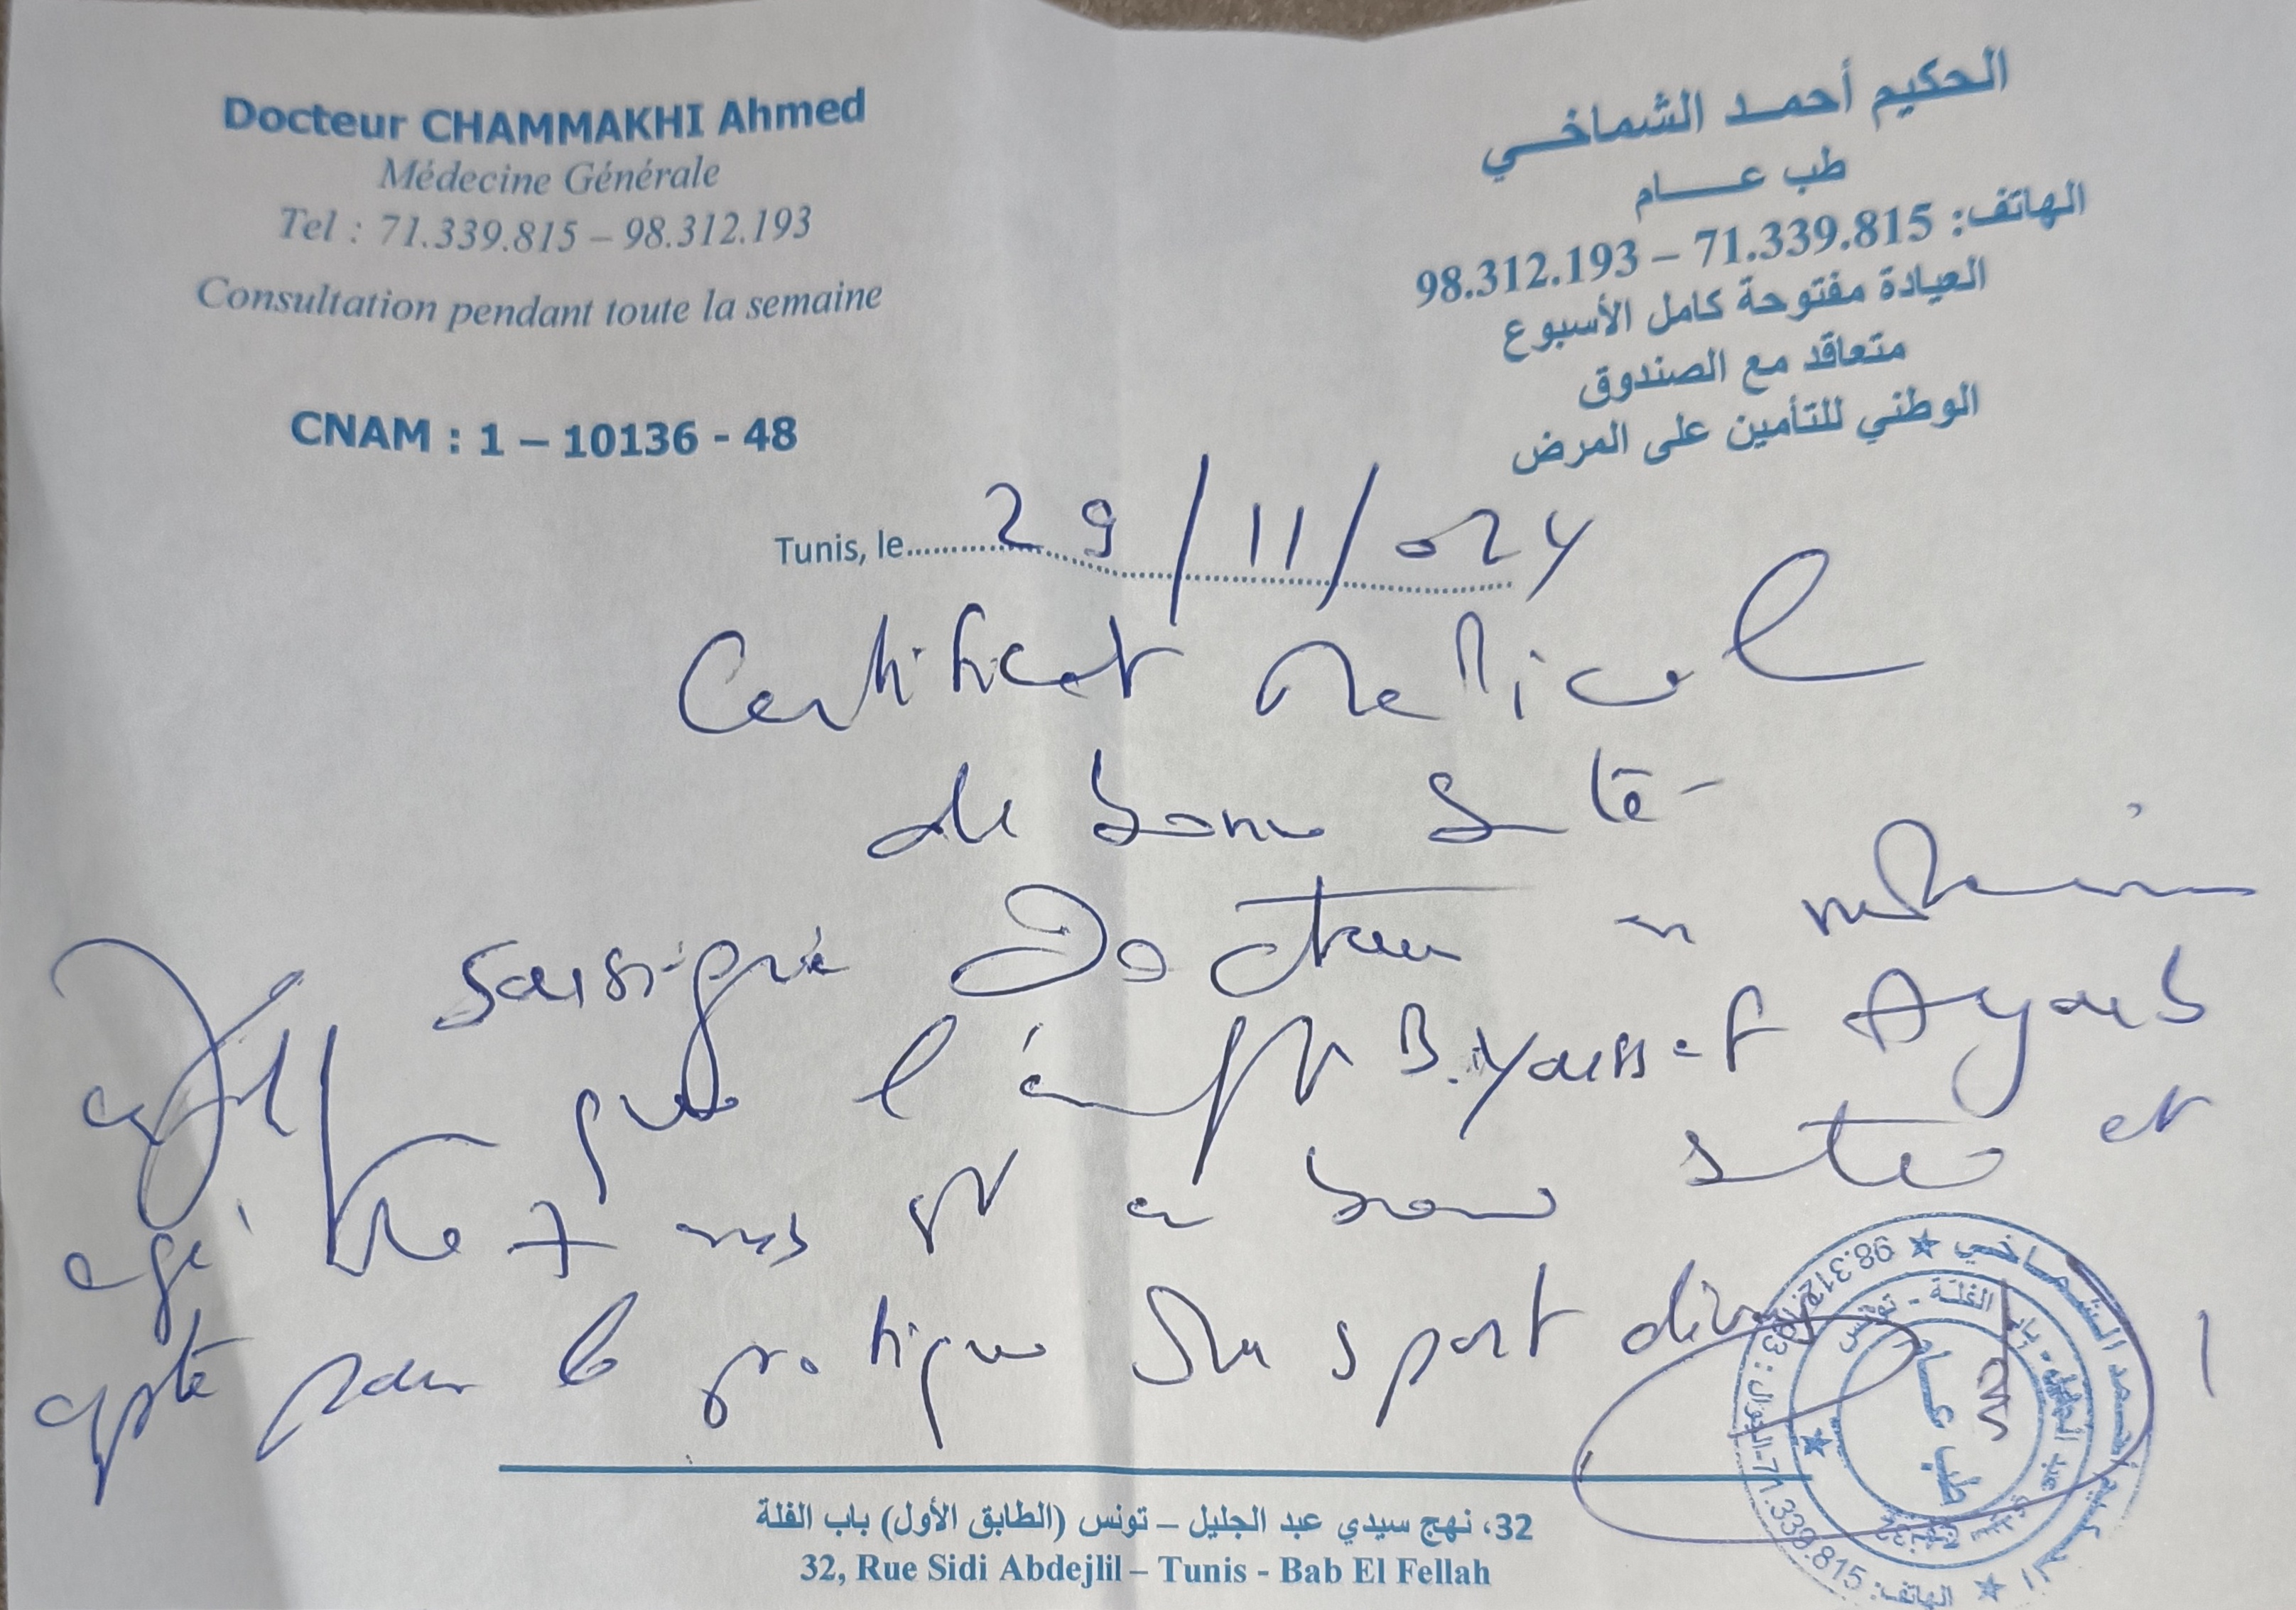 Docteur CHAMMAKHI Ahmed
Médecine Générale
Tel : 71.339.815 – 98.312.193
Consultation pendant toute la semaine
CNAM : 1 – 10136 - 48
الحكيم أحمد الشماخي
طب عام
الهاتف: 71.339.815 – 98.312.193
العيادة مفتوحة كامل الأسبوع
متعاقد مع الصندوق
الوطني للتأمين على المرض
Tunis, le 29/11/024
Certificat Medical
de bonne santé
Je soussigné Docteur en medecine
que l'enfant B.Youssef Ayoub
agé de 7 ans est en bonne santé et
apte pour la pratique du sport
32، نهج سيدي عبد الجليل – تونس (الطابق الأول) باب الفلة
32, Rue Sidi Abdejlil – Tunis - Bab El Fellah
طب عام
الهاتف: 71.339.815 - الجوال: 98.312.193